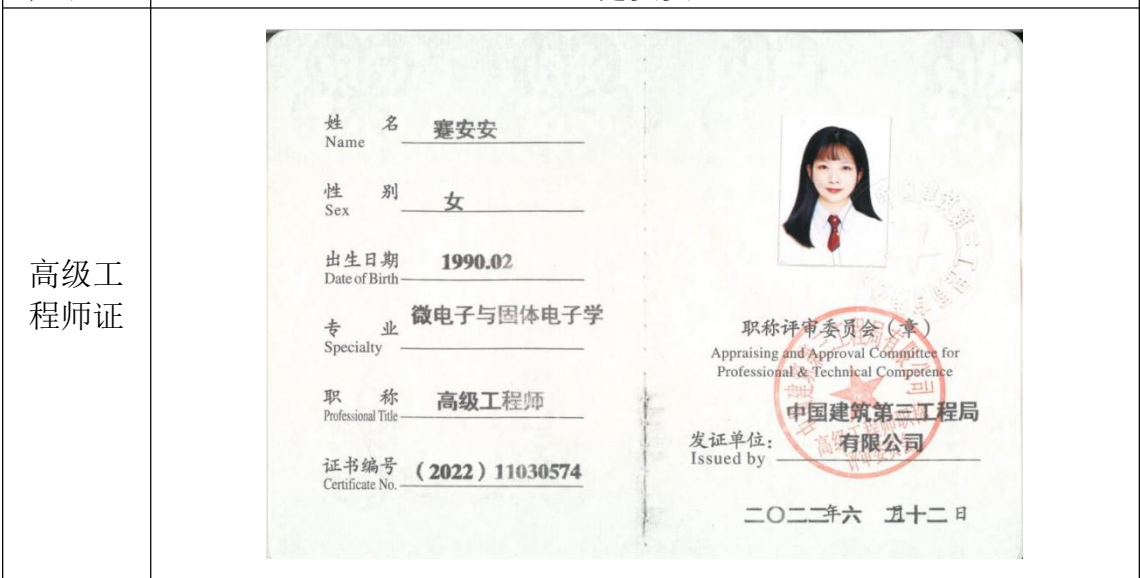 高级工
程师证
姓 名 蹇安安
Name
性 别 女
Sex
出生日期 1990.02
Date of Birth
专 业 微电子与固体电子学
Specialty
职 称 高级工程师
Professional Title
证书编号 （2022）11030574
Certificate No.
职称评审委员会（章）
Appraising and Approval Committee for
Professional & Technical Competence
中国建筑第三工程局
发证单位： 有限公司
Issued by
二〇二二年六 月十二日